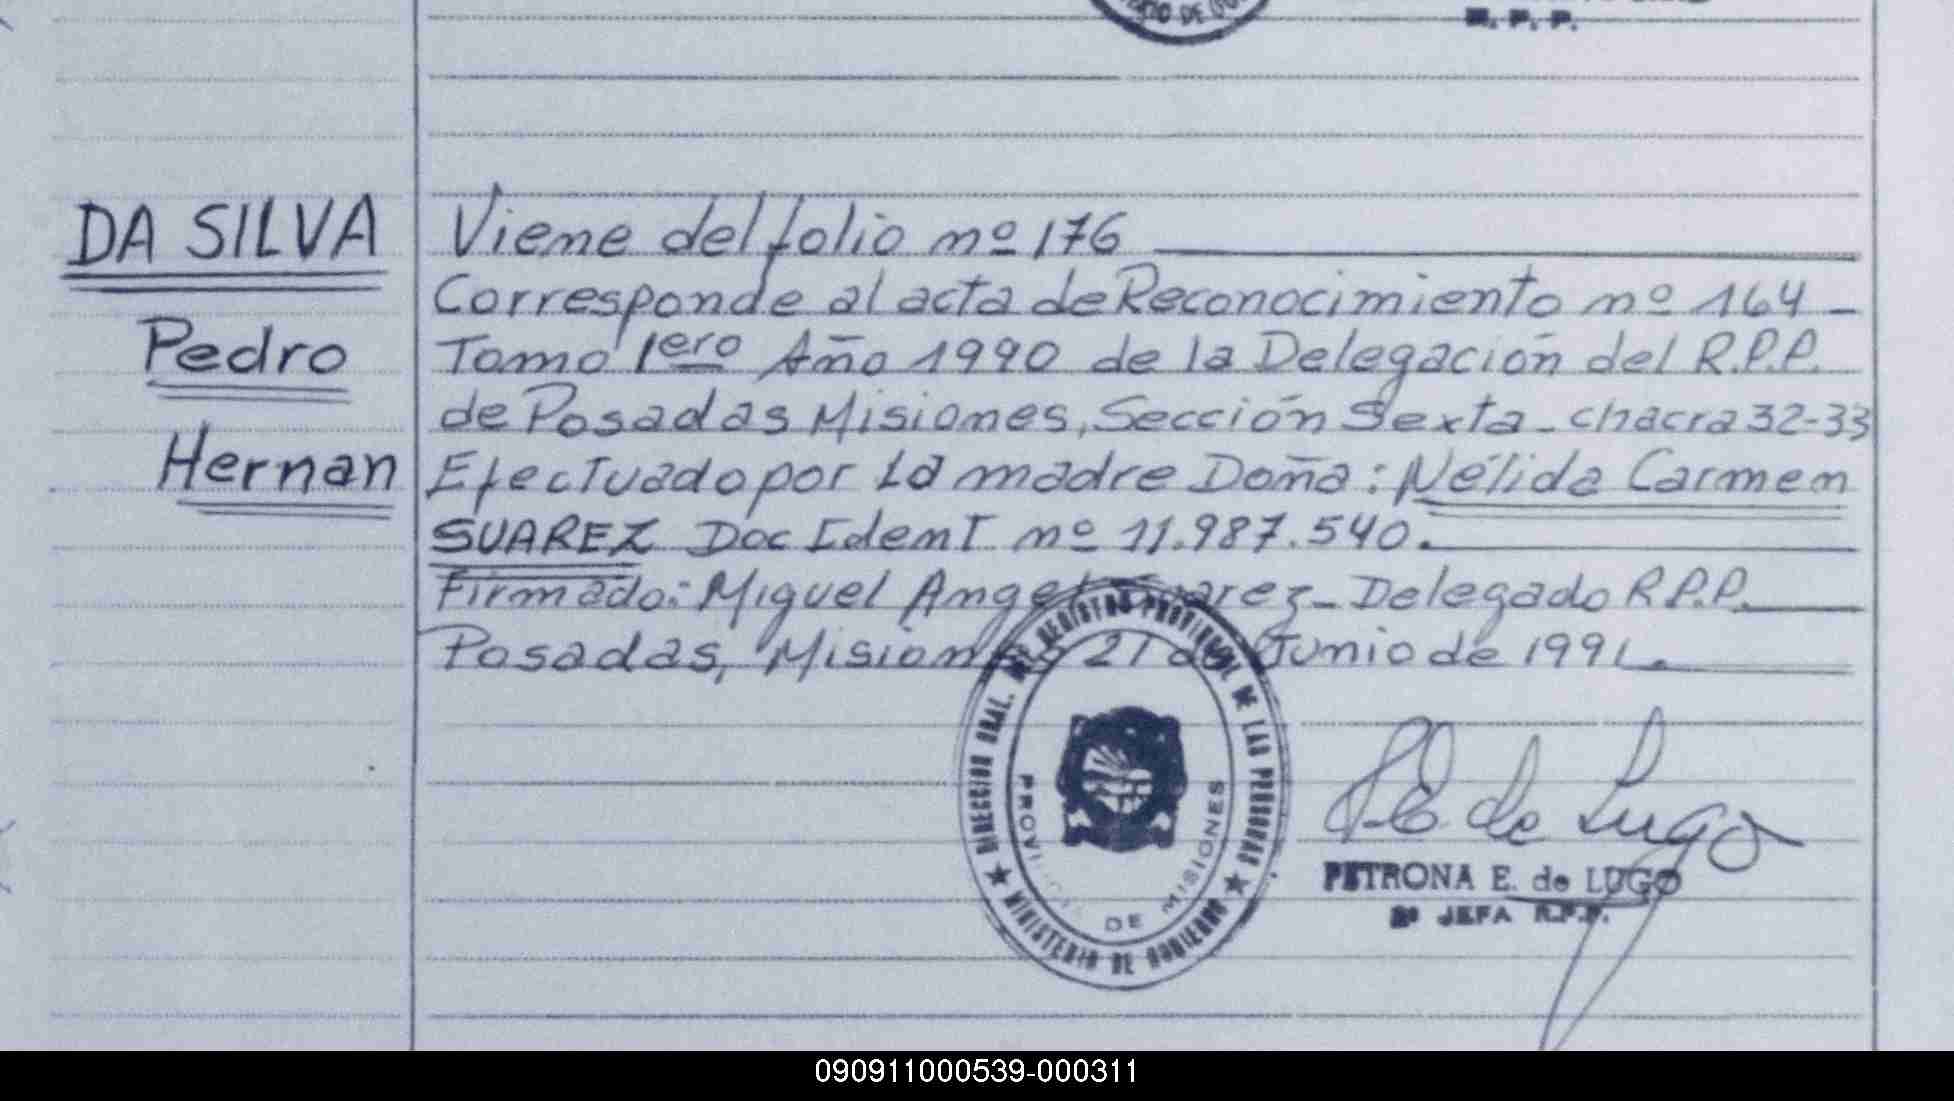 M. P. P.
DA SILVA
Pedro
Hernan
Viene del folio nº 176
Corresponde al acta de Reconocimiento nº 164 -
Tomo 1ero Año 1990 de la Delegación del R.P.P.
de Posadas Misiones, Sección Sexta - chacra 32-33
Efectuado por la madre Doña: Nélida Carmen
SUAREZ Doc Ident nº 11.987.540.
Firmado: Miguel Angel Suarez - Delegado R.P.P.
Posadas, Misiones 21 de Junio de 1991.
DIRECCION GRAL. DEL REGISTRO PROVINCIAL DE LAS PERSONAS
★ MINISTERIO DE GOBIERNO ★
PROVINCIA DE MISIONES
P.E. de Lugo
PETRONA E. de LUGO
2º JEFA R.P.P.
090911000539-000311